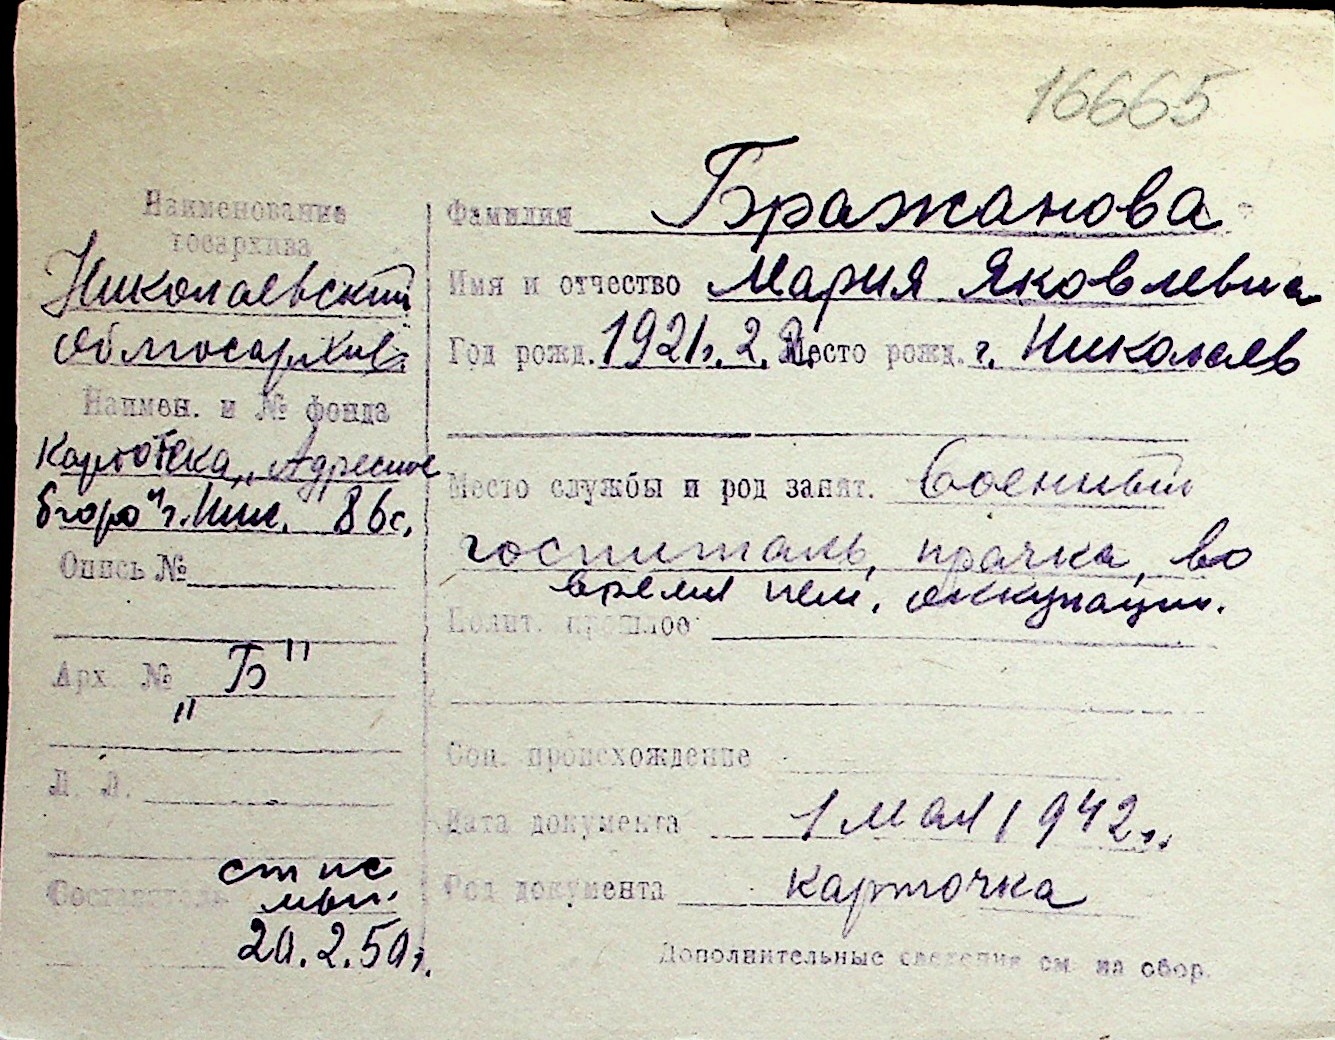 16665
Наименование
госархива
Николаевский
облгосархив
Наимен. и № фонда
Картотека „Адресное
бюро" г. Ник. 86с.
Опись №
Арх. № „Б"
Л. Л.
Составитель
20.2.50г.
Фамилия Бражанова
Имя и отчество Мария Яковлевна
Год рожд. 1921г. 2. Место рожд. г. Николаев
Место службы и род занят. Военный
госпиталь, прачка, во
время нем. оккупации.
Полит. прошлое
Соц. происхождение
Дата документа 1 мая 1942г.
Род документа карточка
Дополнительные сведения см. на обор.